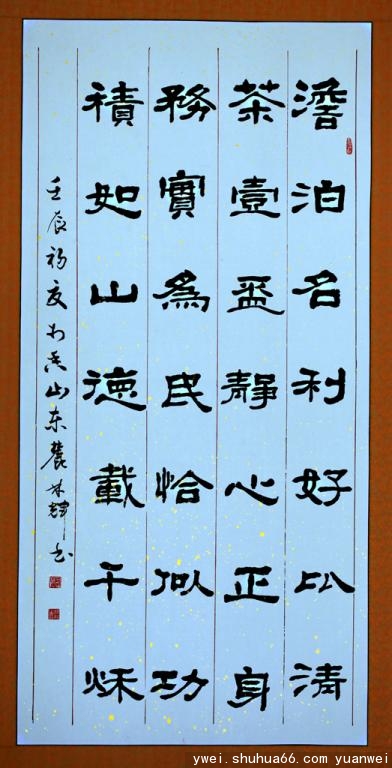 澹泊名利好比清
茶壹盃靜心正身
務實為民恰似功
積如山德載千秋
壬辰初夏於香山東麓林輝書
ywei.shuhua66.com yuanwei